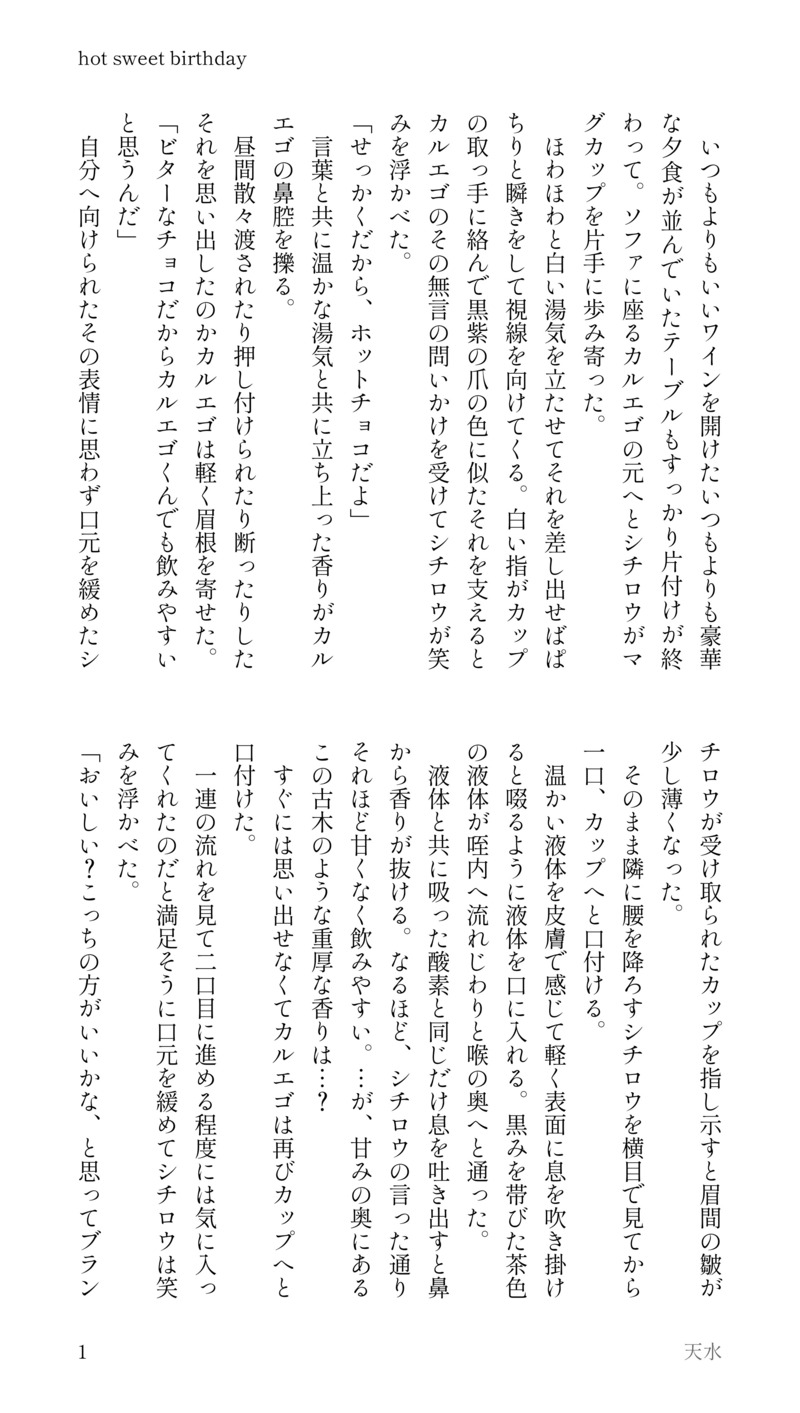 hot sweet birthday
　いつもよりもいいワインを開けたいつもよりも豪華
な夕食が並んでいたテーブルもすっかり片付けが終
わって。ソファに座るカルエゴの元へとシチロウがマ
グカップを片手に歩み寄った。
　ほわほわと白い湯気を立たせてそれを差し出せばぱ
ちりと瞬きをして視線を向けてくる。白い指がカップ
の取っ手に絡んで黒紫の爪の色に似たそれを支えると
カルエゴのその無言の問いかけを受けてシチロウが笑
みを浮かべた。
「せっかくだから、ホットチョコだよ」
　言葉と共に温かな湯気と共に立ち上った香りがカル
エゴの鼻腔を擽る。
　昼間散々渡されたり押し付けられたり断ったりした
それを思い出したのかカルエゴは軽く眉根を寄せた。
「ビターなチョコだからカルエゴくんでも飲みやすい
と思うんだ」
　自分へ向けられたその表情に思わず口元を緩めたシ
チロウが受け取られたカップを指し示すと眉間の皺が
少し薄くなった。
　そのまま隣に腰を降ろすシチロウを横目で見てから
一口、カップへと口付ける。
　温かい液体を皮膚で感じて軽く表面に息を吹き掛け
ると啜るように液体を口に入れる。黒みを帯びた茶色
の液体が咥内へ流れじわりと喉の奥へと通った。
　液体と共に吸った酸素と同じだけ息を吐き出すと鼻
から香りが抜ける。なるほど、シチロウの言った通り
それほど甘くなく飲みやすい。…が、甘みの奥にある
この古木のような重厚な香りは…？
　すぐには思い出せなくてカルエゴは再びカップへと
口付けた。
　一連の流れを見て二口目に進める程度には気に入っ
てくれたのだと満足そうに口元を緩めてシチロウは笑
みを浮かべた。
「おいしい？こっちの方がいいかな、と思ってブラン
1
天水